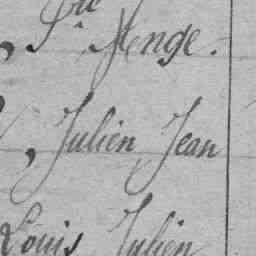 , Ste Menge.
, Julien, Jean
Louis Julien